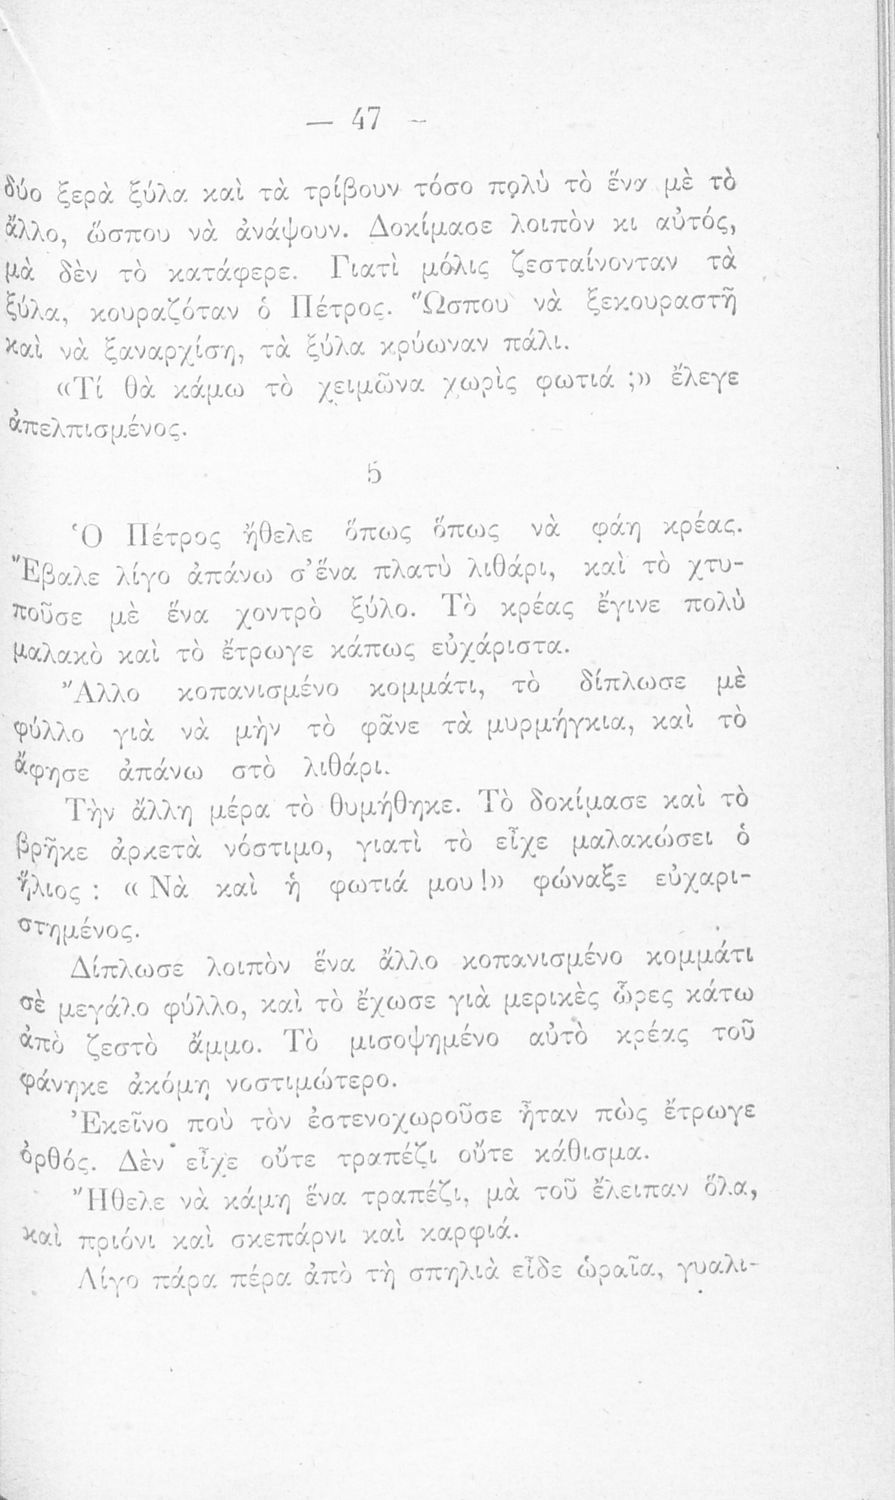 — 47 –
δύο ξερὰ ξύλα καὶ τὰ τρίβουν τόσο πολὺ τὸ ἕνα μὲ τὸ
ἄλλο, ὥσπου νὰ ἀνάψουν. Δοκίμασε λοιπὸν κι αὐτός,
μὰ δὲν τὸ κατάφερε. Γιατὶ μόλις ζεσταίνονταν τὰ
ξύλα, κουραζόταν ὁ Πέτρος. Ὥσπου νὰ ξεκουραστῆ
καὶ νὰ ξαναρχίση, τὰ ξύλα κρύωναν πάλι.
«Τί θὰ κάμω τὸ χειμῶνα χωρὶς φωτιά ;» ἔλεγε
ἀπελπισμένος.
5
Ὁ Πέτρος ἤθελε ὅπως ὅπως νὰ φάη κρέας.
Ἔβαλε λίγο ἀπάνω σ’ἕνα πλατὺ λιθάρι, καὶ τὸ χτυ-
ποῦσε μὲ ἕνα χοντρὸ ξύλο. Τὸ κρέας ἔγινε πολὺ
μαλακὸ καὶ τὸ ἔτρωγε κάπως εὐχάριστα.
Ἄλλο κοπανισμένο κομμάτι, τὸ δίπλωσε μὲ
φύλλο γιὰ νὰ μὴν τὸ φᾶνε τὰ μυρμήγκια, καὶ τὸ
ἄφησε ἀπάνω στὸ λιθάρι.
Τὴν ἄλλη μέρα τὸ θυμήθηκε. Τὸ δοκίμασε καὶ τὸ
βρῆκε ἀρκετὰ νόστιμο, γιατὶ τὸ εἶχε μαλακώσει ὁ
ἥλιος : « Νὰ καὶ ἡ φωτιά μου!» φώναξε εὐχαρι-
στημένος.
Δίπλωσε λοιπὸν ἕνα ἄλλο κοπανισμένο κομμάτι
σὲ μεγάλο φύλλο, καὶ τὸ ἔχωσε γιὰ μερικὲς ὧρες κάτω
ἀπὸ ζεστὸ ἄμμο. Τὸ μισοψημένο αὐτὸ κρέας τοῦ
φάνηκε ἀκόμη νοστιμώτερο.
Ἐκεῖνο ποὺ τὸν ἐστενοχωροῦσε ἦταν πὼς ἔτρωγε
ὀρθός. Δὲν εἶχε οὔτε τραπέζι οὔτε κάθισμα.
Ἤθελε νὰ κάμη ἕνα τραπέζι, μὰ τοῦ ἔλειπαν ὅλα,
καὶ πριόνι καὶ σκεπάρνι καὶ καρφιά.
Λίγο πάρα πέρα ἀπὸ τὴ σπηλιὰ εἶδε ὡραῖα, γυαλι-